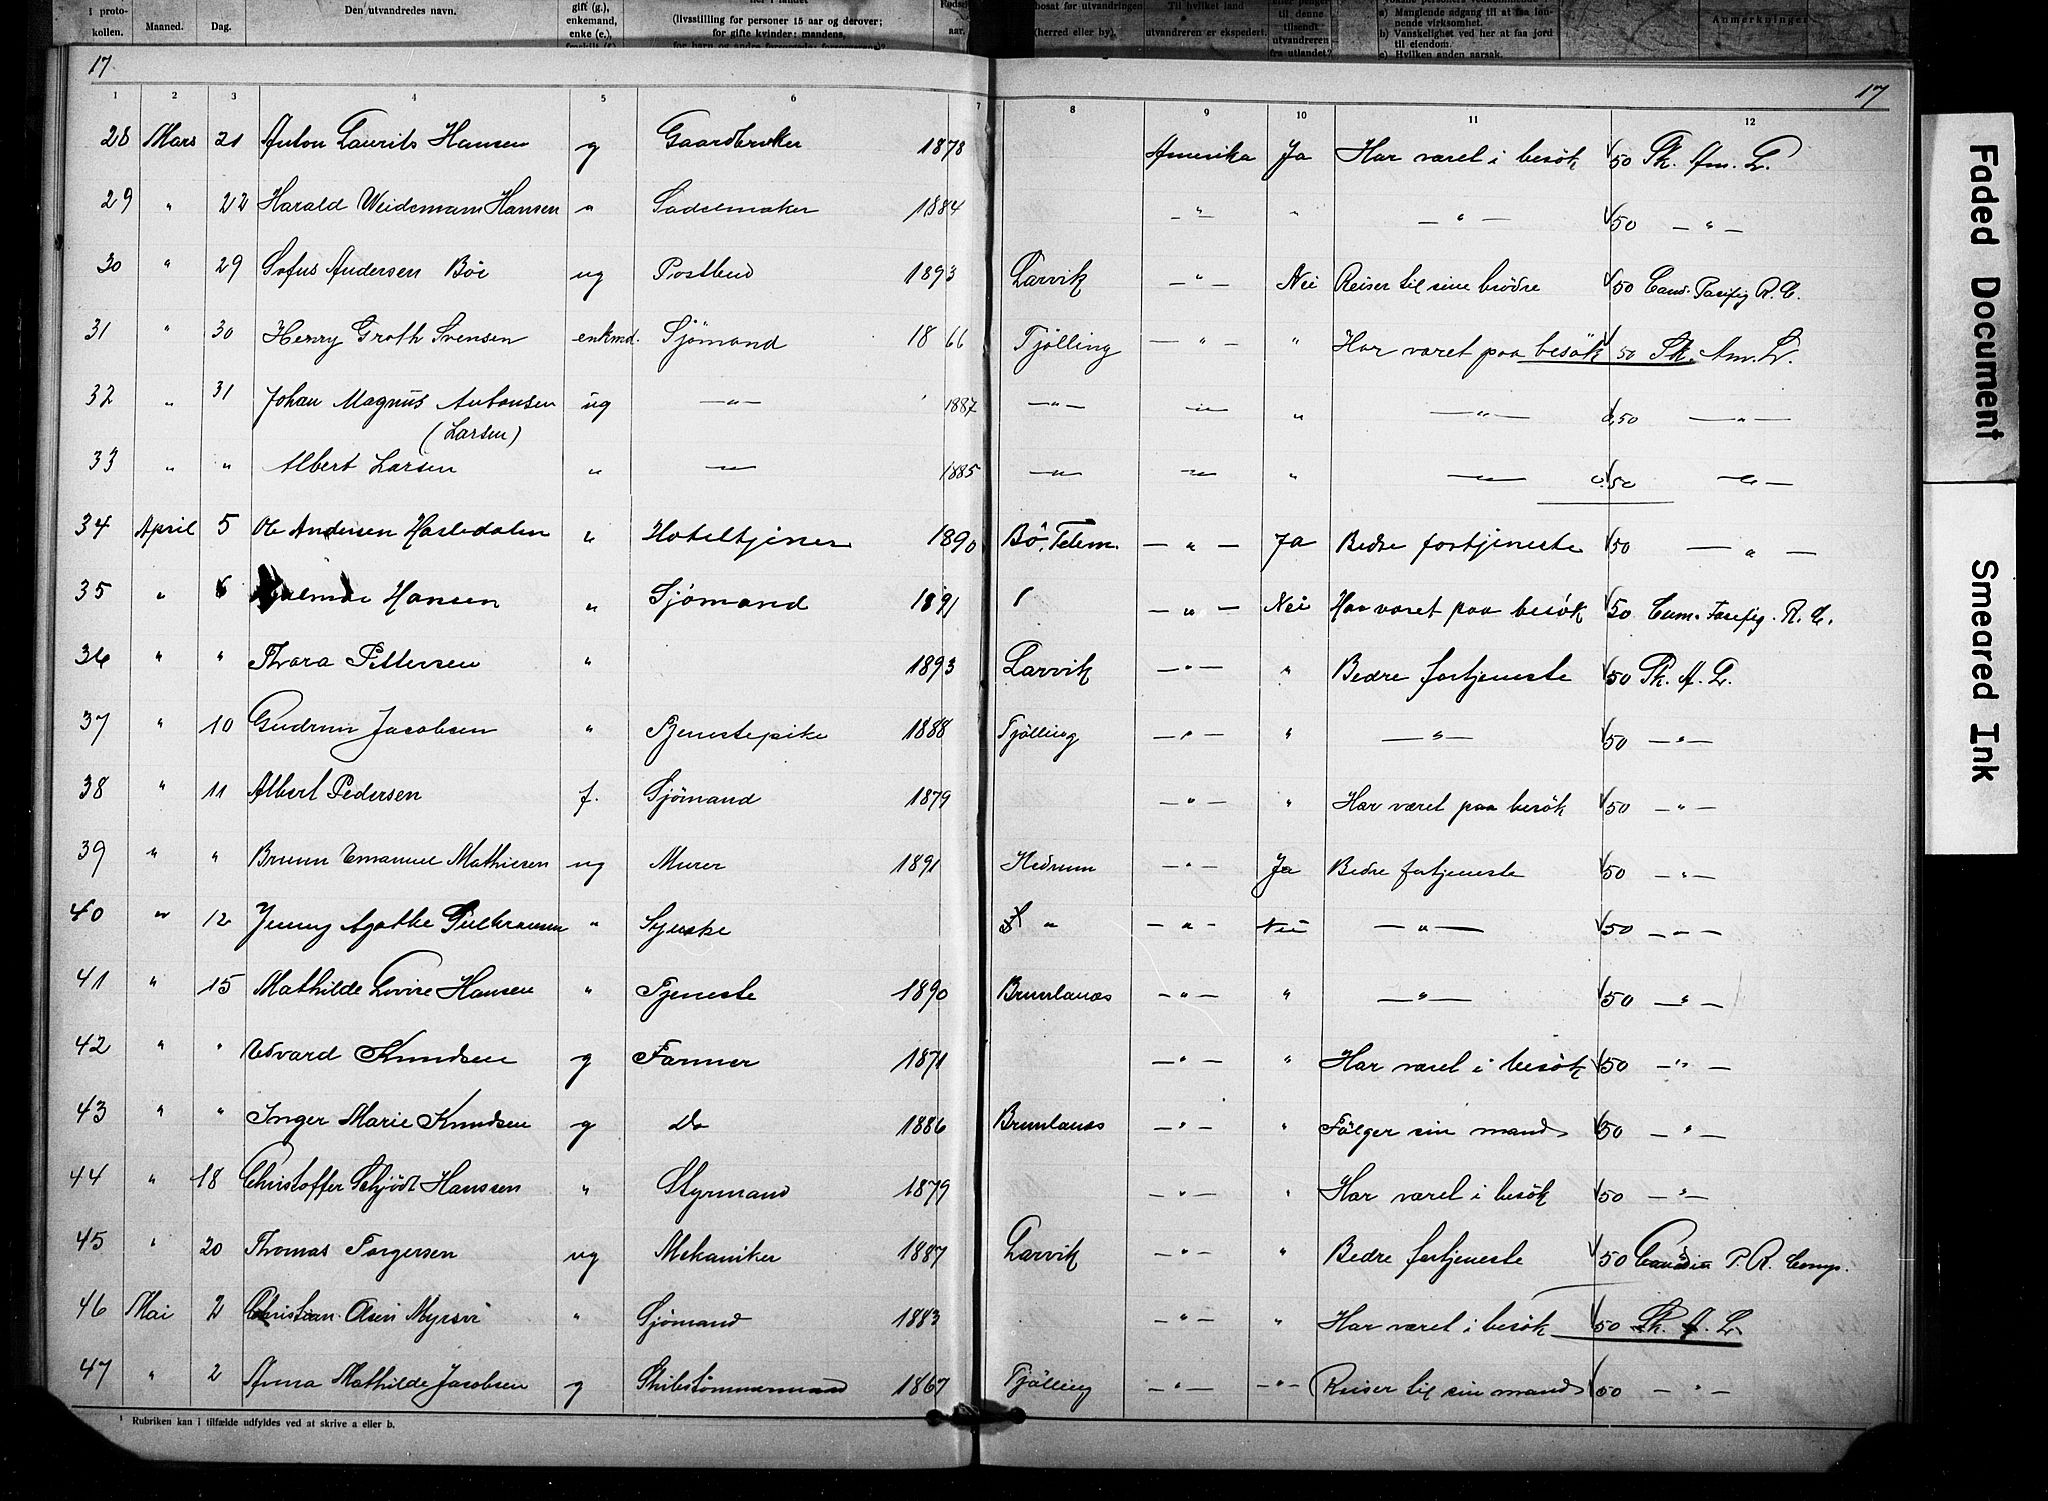 I proto- kollen. Maaned. Dag. Den utvandredes navn. gift (g.), enkemand, enke (e.), (livsstilling for personer 15 aar og derover; for gifte kvinder: mandens, aar. bosat før utvandringen (herred eller by). Til hvilket land utvandreren er ekspedert. eller penger til denne tilsendt utvandreren fra utlandet? a) Manglende adgang til at faa løn- nende virksomhet. b) Vanskelighet ved her at faa jord til eiendom. c) Hvilken anden aarsak. Anmerkninger
17 17
1 2 3 4 5 6 7 8 9 10 11 12
28 Mars 21 Anton Laurits Hansen g Gaardbruker 1878 Amerika Ja Har været i besök 50 Sk. Am. L.
29 " 22 Harald Weidemann Hansen " Sadelmaker 1884 —"— " —"— 50 —"—
30 " 29 Sofus Andersen Böe ug Postbud 1893 Larvik —"— Nei Reiser til sine brödre 50 Cana. Pasifig R. C.
31 " 30 Henry Groth Svensen enkmd. Sjömand 1866 Tjölling —"— " Har været paa besök 50 Sk. Am. L.
32 " 31 Johan Magnus Antonsen ug —"— 1887 —"— —"— " —"— 0,50 —"—
(Larsen)
33 " " Albert Larsen " —"— 1885 —"— —"— " —"— 0,50 —"—
34 April 5 Ole Andersen Hasledalen " Hoteltjener 1890 Bö, Telem. —"— Ja Bedre fortjeneste 50 —"—
35 " 6 Hansen " Sjömand 1891 —"— Nei Har været paa besök 50 Cana. Pasifig. R. C.
36 " " Thora Pettersen " 1893 Larvik —"— " Bedre fortjeneste 50 Sk. A. L.
37 " 10 Gudrun Jacobsen " Tjenestepike 1888 Tjölling —"— " —"— 50 —"—
38 " 11 Albert Pedersen f. Sjömand 1879 —"— " Har været paa besök 50 —"—
39 " " Brunn Emanuel Mathiesen ug Murer 1891 Hedrum —"— Ja Bedre fortjeneste 50 —"—
40 " 12 Jenny Agathe " Syerske " —"— Nei —"— 50 —"—
41 " 15 Mathilde Lovise Hansen " Tjeneste 1890 Brunlanæs —"— " —"— 50 —"—
42 " " Edvard Knudsen g Farmer 1871 —"— " Har været i besök 50 —"—
43 " " Inger Marie Knudsen g Do 1886 Brunlanæs —"— " Fölger sin mand 50 —"—
44 " 18 Christoffer Schjödt Hanssen " Styrmand 1879 —"— " Har været i besök 50 —"—
45 " 20 Thomas Torgersen ug Mekaniker 1887 Larvik —"— " Bedre fortjeneste 50 P. R. Comp.
46 Mai 2 Christian Olsen " Sjömand 1883 —"— " Har været i besök 50 Sk. A. L.
47 " 2 Anna Mathilde Jacobsen g Skibstömmermand 1867 Tjölling —"— —"— Reiser til sin mand 50 —"—
¹ Rubriken kan i tilfælde udfyldes ved at skrive a eller b.
Faded Document
Smeared Ink